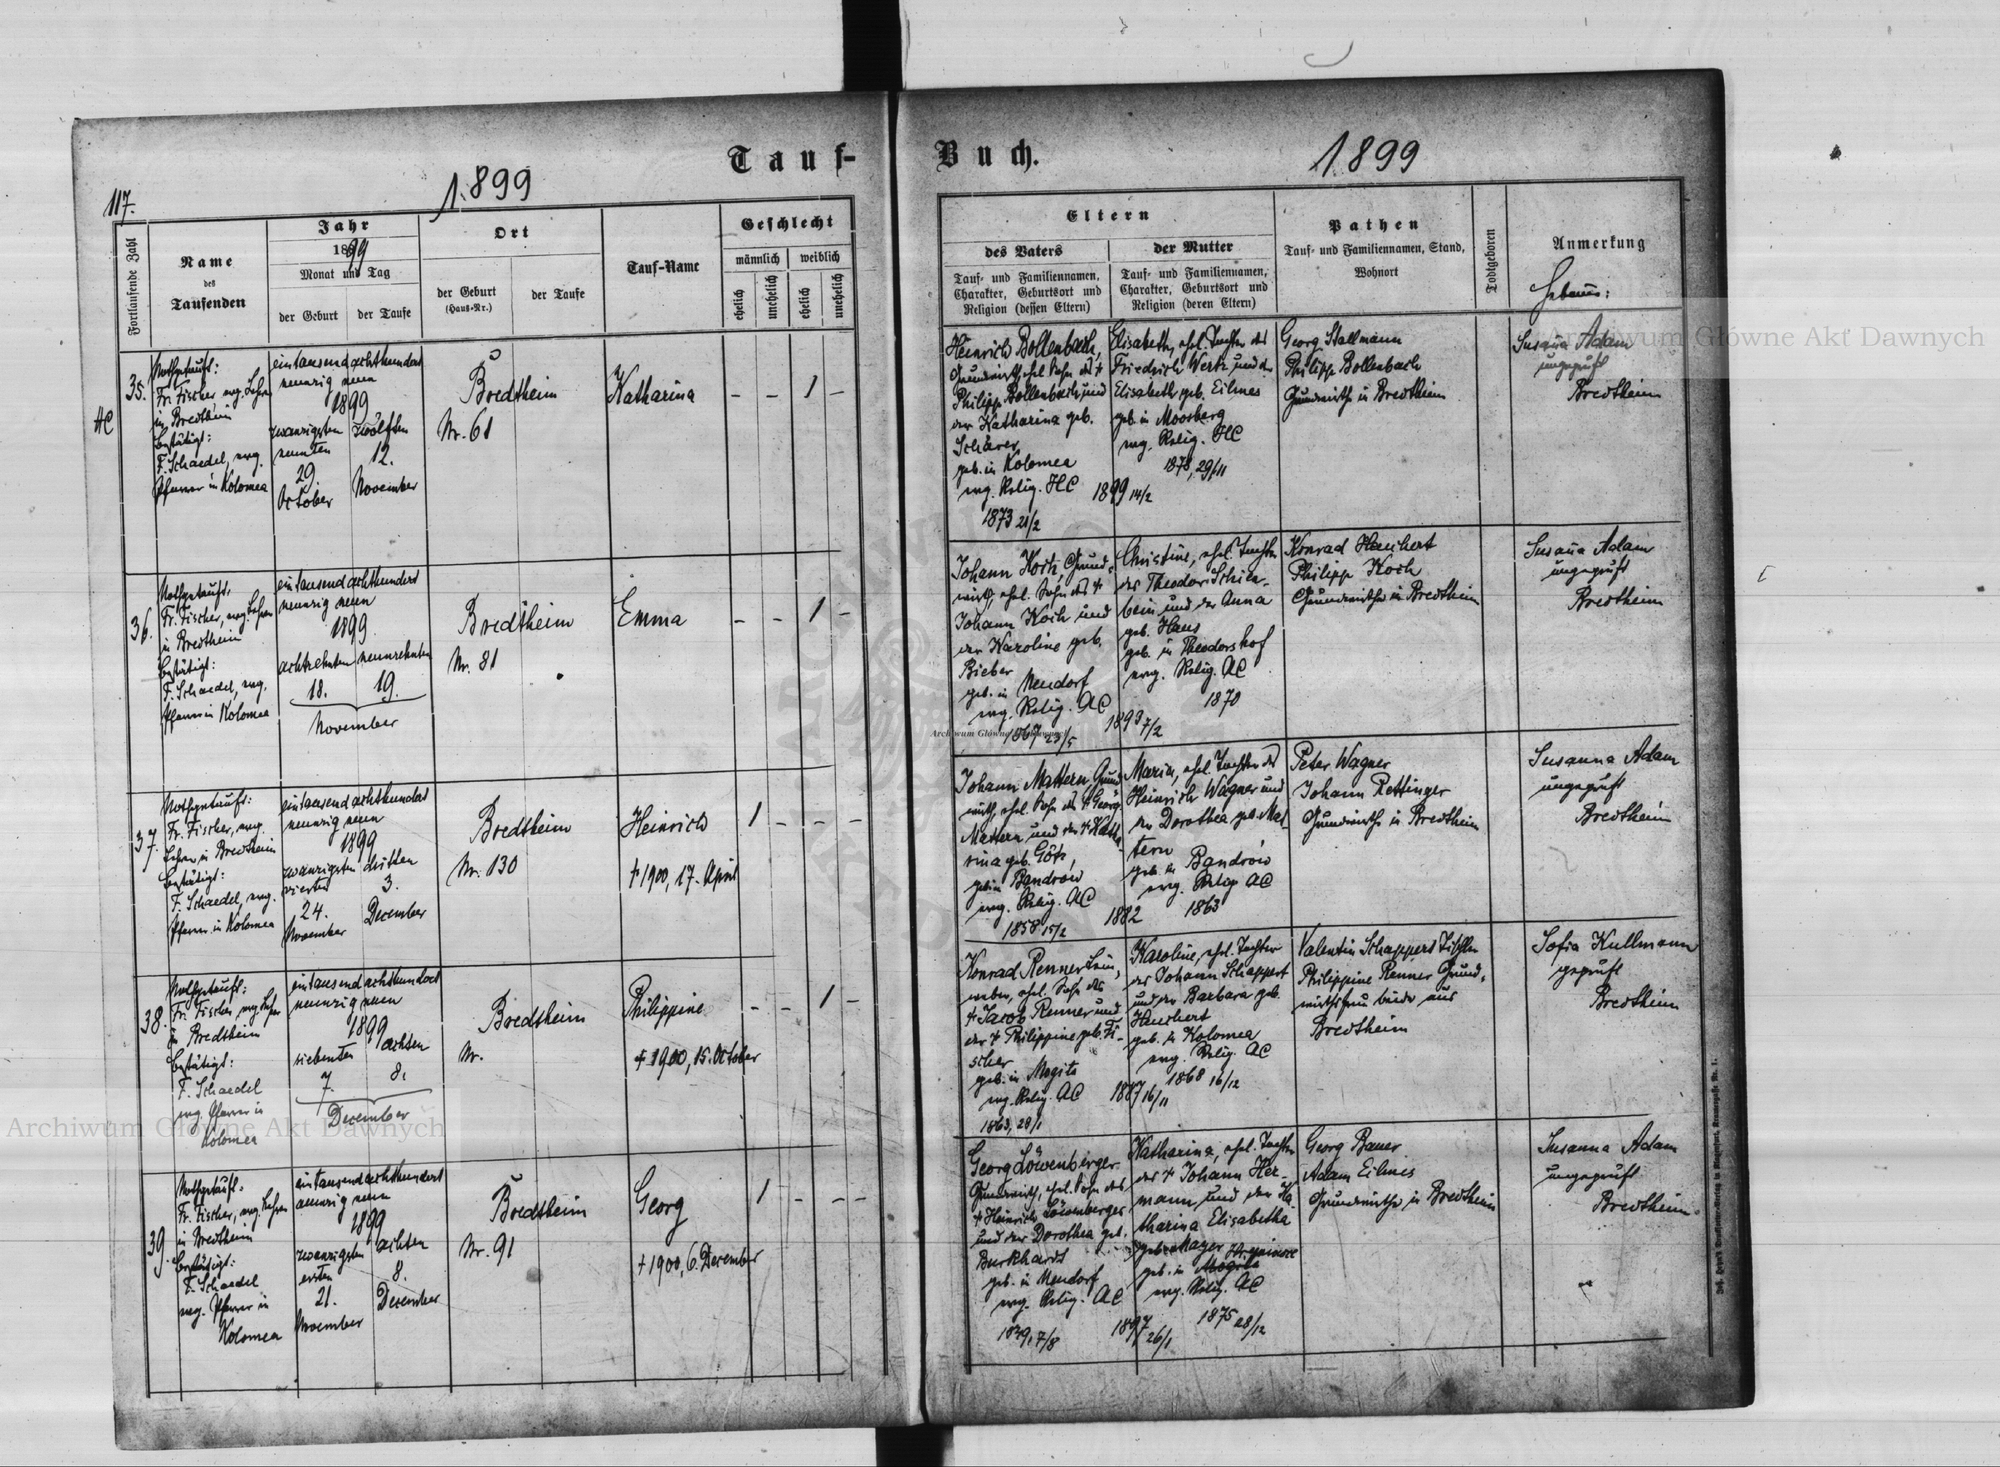 Tauf-
Buch.
1899
1899
117.
Fortlaufende Zahl
Name
des
Taufenden
Jahr
1899
Monat und Tag
der Geburt
der Taufe
Ort
der Geburt
(Haus-Nr.)
der Taufe
Tauf-Name
Geschlecht
männlich
weiblich
ehelich
unehelich
ehelich
unehelich
Eltern
des Vaters
Tauf- und Familiennamen,
Charakter, Geburtsort und
Religion (dessen Eltern)
der Mutter
Tauf- und Familiennamen,
Charakter, Geburtsort und
Religion (deren Eltern)
Pathen
Tauf- und Familiennamen, Stand,
Wohnort
Todtgeboren
Anmerkung
HC
35.
Nothgetauft:
Fr. Fischer evg. Lehrer
in Bredtheim
bestätigt:
F. Schaedel, evg.
Pfarrer in Kolomea
eintausend achthundert
neunzig neun
1899
zwanzigsten
neunten
29
October
zwölften
12.
November
Bredtheim
Nr. 61
Katharina
- - 1 -
Heinrich Bollenbach,
Grundwirth, ehel. Sohn des +
Philipp Bollenbach und
der Katharina geb.
Schärer
geb. in Kolomea
evg. Relig. HC
1873 21/2
1899 14/2
Elisabeth, ehel. Tochter des
Friedrich Wertz und der
Elisabeth geb. Eilmes
geb. in Moosberg
evg. Relig. HC
1878, 29/11
Georg Stallmann
Philipp Bollenbach
Grundwirthe in Bredtheim
Susana Adam
ungeprüft
Bredtheim
36.
Nothgetauft:
Fr. Fischer, evg. Lehrer
in Bredtheim
bestätigt:
F. Schaedel, evg.
Pfarrer in Kolomea
eintausend achthundert
neunzig neun
1899
achtzehnten neunzehnten
18. 19.
November
Bredtheim
Nr. 81
Emma
- - 1 -
Johann Koch, Grund-
wirth, ehel. Sohn des +
Johann Koch und
der Karoline geb.
Bieber
geb. in Neudorf
evg. Relig. AC
1867 23/5
1893 7/2
Christine, ehel. Tochter
des Theodor Schien-
bein und der Anna
geb. Haus
geb. in Theodorshof
evg. Relig. AC
1870
Konrad Haubert
Philipp Koch
Grundwirthe in Bredtheim
Susana Adam
ungeprüft
Bredtheim
37.
Nothgetauft:
Fr. Fischer, evg.
Lehrer in Bredtheim
bestätigt:
F. Schaedel, evg.
Pfarrer in Kolomea
eintausend achthundert
neunzig neun
1899
zwanzigsten
vierten
24.
November
dritten
3.
December
Bredtheim
Nr. 130
Heinrich
+ 1900, 17. April
1 - - -
Johann Mattern Grund-
wirth, ehel. Sohn des + Georg
Mattern und der + Katha-
rina geb. Götz,
geb. in Bandrów
evg. Relig. AC
1858 15/2
1882
Maria, ehel. Tochter des
Heinrich Wagner und
der Dorothea geb. Mat-
tern
geb. in Bandrów
evg. Relig. AC
1863
Peter Wagner
Johann Rettinger
Grundwirthe in Bredtheim
Susanna Adam
ungeprüft
Bredtheim
38.
Nothgetauft:
Fr. Fischer evg. Lehrer
in Bredtheim
bestätigt:
F. Schaedel
evg. Pfarrer in
Kolomea
eintausend achthundert
neunzig neun
1899
siebenten achten
7. 8.
December
Bredtheim
Nr.
Philippine
+ 1900, 15. October
- - 1 -
Konrad Renner Lein-
weber, ehel. Sohn des
+ Jacob Renner und
der + Philippine geb. Fi-
scher
geb. in Mogila
evg. Relig. AC
1863, 28/1
1887 16/11
Karoline, ehel. Tochter
des Johann Schappert
und der Barbara geb.
Haubert
geb. in Kolomea
evg. Relig. AC
1868 16/12
Valentin Schappert Tischler
Philippine Renner Grund-
wirthsfrau beide aus
Bredtheim
Sofia Kullmann
geprüft
Bredtheim
39.
Nothgetauft:
Fr. Fischer, evg. Lehrer
in Bredtheim
bestätigt:
F. Schaedel
evg. Pfarrer in
Kolomea
eintausend achthundert
neunzig neun
1899
zwanzigsten
ersten
21.
November
achten
8.
December
Bredtheim
Nr. 91
Georg
+ 1900, 6. December
1 - - -
Georg Löwenberger
Grundwirth, ehel. Sohn des
+ Heinrich Löwenberger
und der Dorothea geb.
Burkhardt
geb. in Neudorf
evg. Relig. AC
1897 26/1
Katharina, ehel. Tochter
des + Johann Her-
mann und der Ka-
tharina Elisabetha
geb. Mayer
geb. in Mogila
evg. Relig. AC
1875 28/12
Georg Bauer
Adam Eilmes
Grundwirthe in Bredtheim
Susanna Adam
ungeprüft
Bredtheim
Archiwum Główne Akt Dawnych
Archiwum Główne Akt Dawnych
Archiwum Główne Akt Dawnych